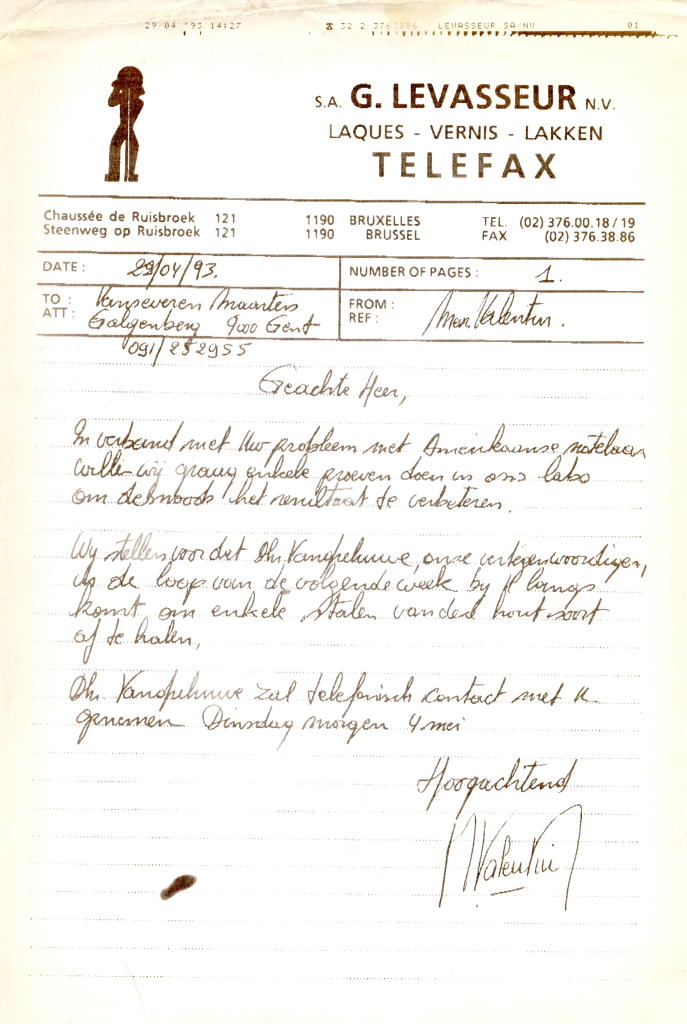 29/04 '93 14:27 32 2 3763886 LEVASSEUR SA/NV 01
S.A. G. LEVASSEUR N.V.
LAQUES - VERNIS - LAKKEN
TELEFAX
Chaussée de Ruisbroek 121 1190 BRUXELLES TEL. (02) 376.00.18/19
Steenweg op Ruisbroek 121 1190 BRUSSEL FAX (02) 376.38.86
DATE : 29/04/93. NUMBER OF PAGES : 1.
TO : Vanseveren Maarten FROM : Valentin.
ATT : Galgenberg 9000 Gent REF :
091/252955
Geachte Heer,
In verband met Uw probleem met Amerikaanse notelaar
willen wij graag enkele proeven doen in ons labo
om desnoods het resultaat te verbeteren.
Wij stellen voor dat Dhr Vanpeluwe, onze vertegenwoordiger,
in de loop van de volgende week bij U langs
komt om enkele stalen van die hout soort
af te halen.
Dhr Vanpeluwe zal telefonisch contact met U
genomen Dinsdag morgen 4 mei
Hoogachtend
Valentin